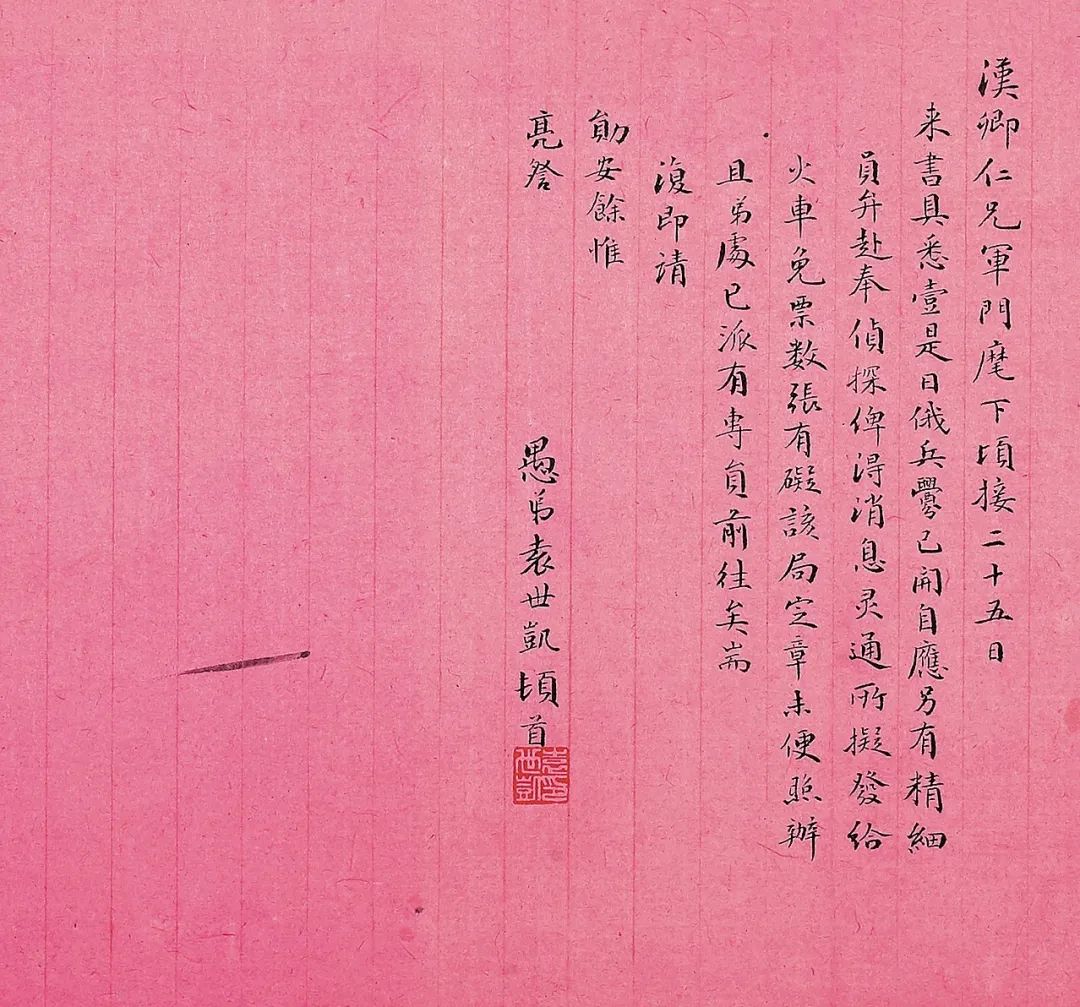 漢卿仁兄軍門麾下頃接二十五日
来書具悉壹是日俄兵釁已開自應另有精細
員弁赴奉偵探俾淂消息灵通所擬發给
火車免票数張有礙該局定章未便照辦
且弟處已派有專員前往矣耑
復即請
勛安餘惟
亮詧
愚弟袁世凱頓首
袁世凱印